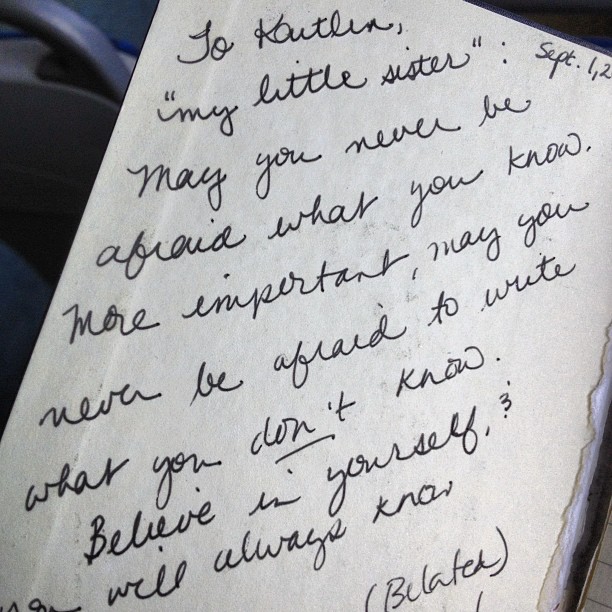 To Kaitlin,
"my little sister": Sept. 1, 2
May you never be
afraid what you know.
More important, may you
never be afraid to write
what you don't know.
Believe in yourself, &
you will always know
(Belated)